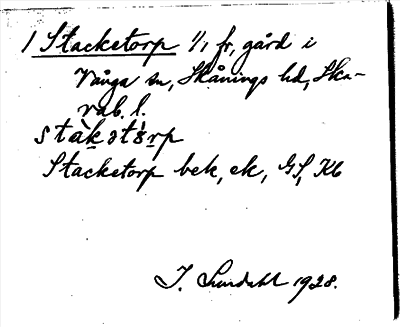 1 Stacketorp 1/1 fr, gård i
Vånga sn, Skånings hd, Ska-
rab. l.
stàkətɔ̀rp
Stacketorp bek, ek, GS, Kb
I. Lundahl 1928.